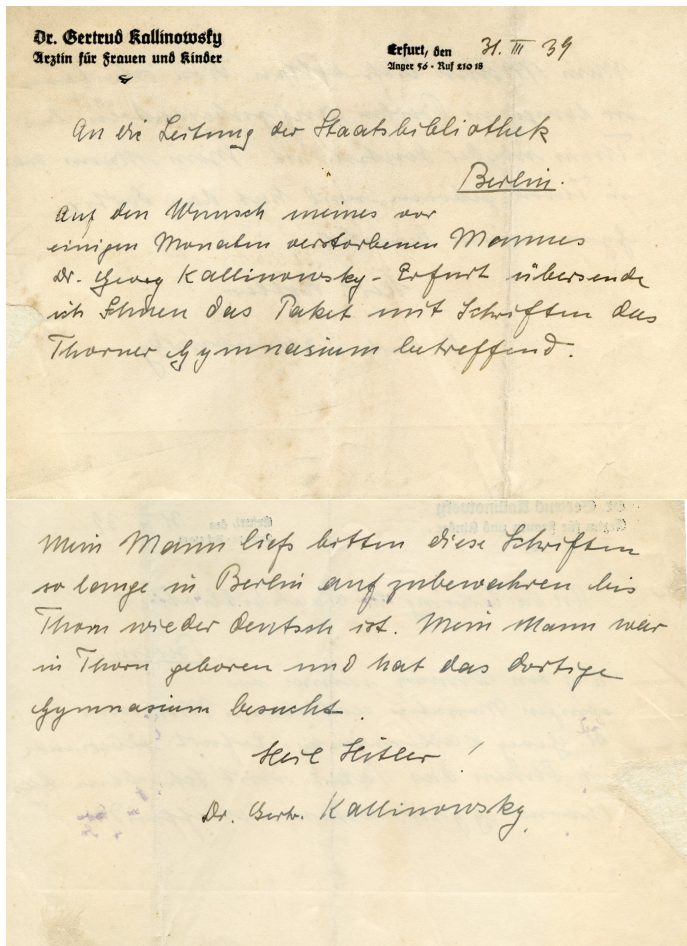 Dr. Gertrud Kallinowsky
Ärztin für Frauen und Kinder
Erfurt, den 31. III 39
Anger 56 · Ruf 210 18
An die Leitung der Staatsbibliothek
Berlin.
Auf den Wunsch meines vor
einigen Monaten verstorbenen Mannes
Dr. Georg Kallinowsky - Erfurt übersende
ich Ihnen das Paket mit Schriften das
Thorner Gymnasium betreffend.
Mein Mann ließ bitten diese Schriften
so lange in Berlin aufzubewahren bis
Thorn wieder deutsch ist. Mein Mann war
in Thorn geboren und hat das dortige
Gymnasium besucht.
Heil Hitler!
Dr. Gertr. Kallinowsky